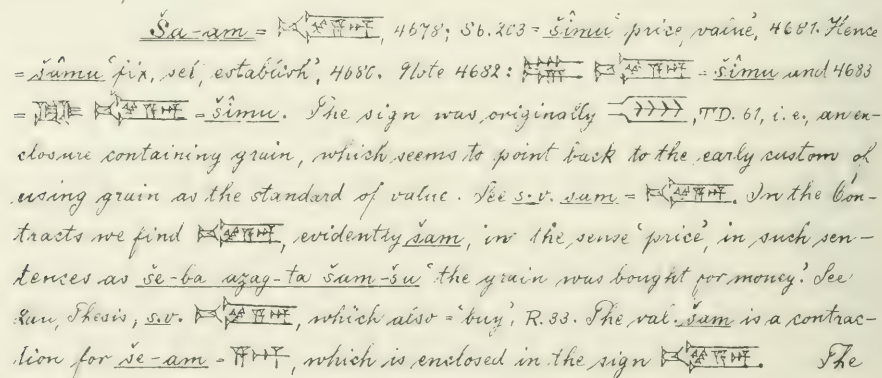 Ša-am = , 4678; Sb. 203 = šîmu 'price, value', 4681. Hence
= šâmu 'fix, set, establish', 4680. Note 4682: = šîmu and 4683
= = šîmu. The sign was originally , TD. 61, i.e., an en-
closure containing grain, which seems to point back to the early custom of
using grain as the standard of value. See s.v. sam = . In the Con-
tracts we find , evidently šam, in the sense 'price', in such sen-
tences as še-ba azag-ta šam-šu 'the grain was bought for money'. See
Lau, Thesis, s.v. , which also = 'buy', R. 33. The val. šam is a contrac-
tion for še-am = , which is enclosed in the sign . The